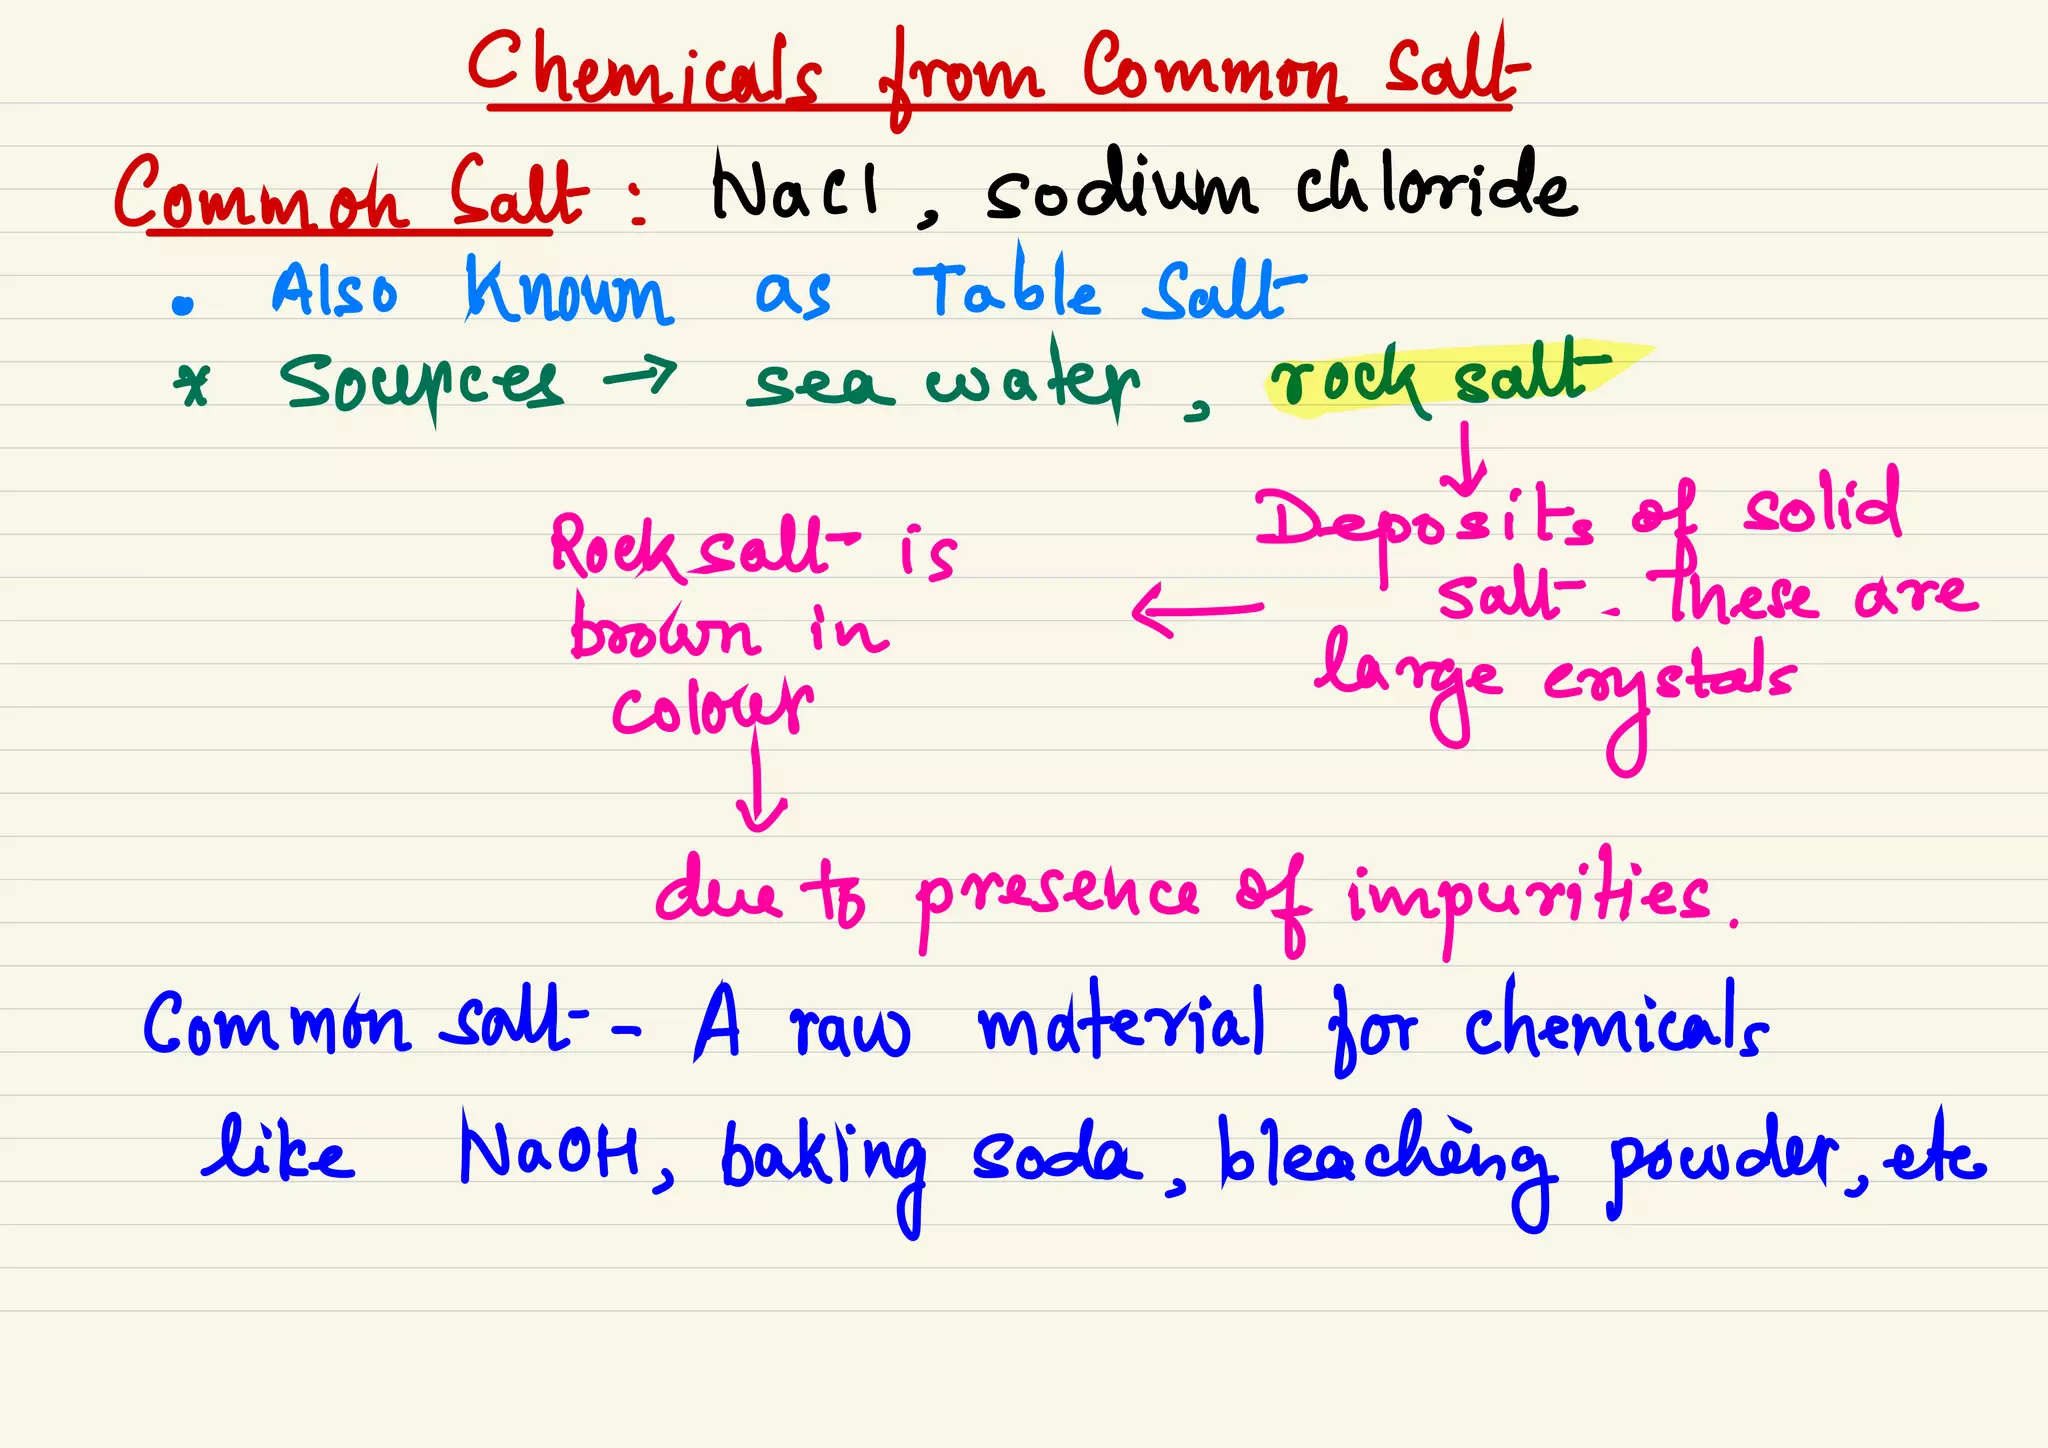 Chemicals from Common Salt
Common Salt : NaCl, sodium chloride
• Also Known as Table Salt
* Sources → sea water, rock salt
↓
Deposits of solid
salt. These are
large crystals
←
Rock salt is
brown in
colour
↓
due to presence of impurities.
Common salt - A raw material for chemicals
like NaOH, baking soda, bleaching powder, etc